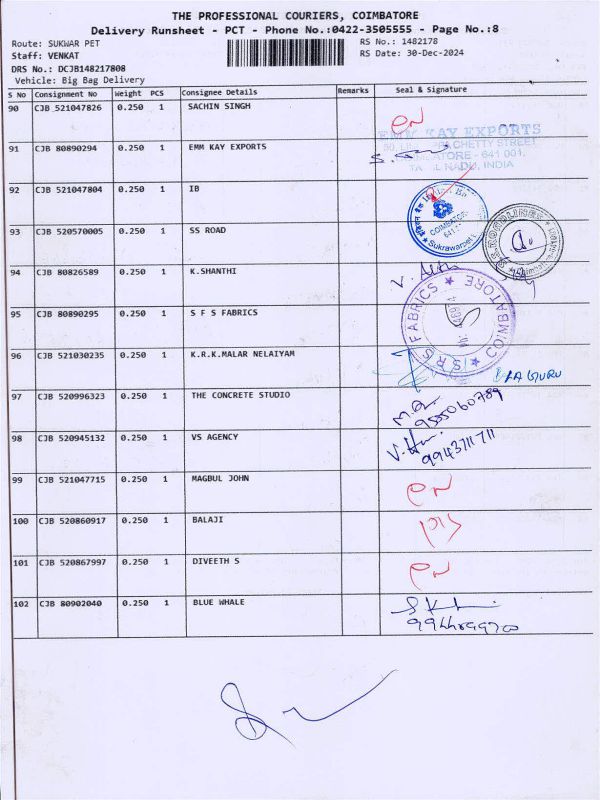 THE PROFESSIONAL COURIERS, COIMBATORE
Delivery Runsheet - PCT - Phone No.:0422-3505555 - Page No.:8
Route: SUKWAR PET RS No.: 1482178
Staff: VENKAT RS Date: 30-Dec-2024
DRS No.: DCJB148217808
Vehicle: Big Bag Delivery
S No Consignment No Weight PCS Consignee Details Remarks Seal & Signature
90 CJB 521047826 0.250 1 SACHIN SINGH
91 CJB 80890294 0.250 1 EMM KAY EXPORTS
EMM KAY EXPORTS
CHETTY STREET
641 001.
NADU, INDIA
92 CJB 521047804 0.250 1 IB
COIMBATORE
641
Sukrawarpet
93 CJB 520570005 0.250 1 SS ROAD
94 CJB 80826589 0.250 1 K.SHANTHI
95 CJB 80890295 0.250 1 S F S FABRICS
S R S FABRICS COIMBATORE
96 CJB 521030235 0.250 1 K.R.K.MALAR NELAIYAM
97 CJB 520996323 0.250 1 THE CONCRETE STUDIO
9555060789
98 CJB 520945132 0.250 1 VS AGENCY
9943711711
99 CJB 521047715 0.250 1 MAGBUL JOHN
100 CJB 520860917 0.250 1 BALAJI
101 CJB 520867997 0.250 1 DIVEETH S
102 CJB 80902040 0.250 1 BLUE WHALE